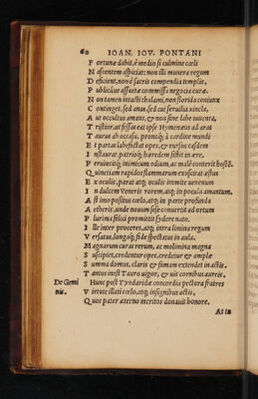 60 IOAN. IOV. PONTANI
Fortunæ dubit, è medio si culmine cœli
Nascentem aspiciat: non illi munera regum
Deficient, non è sacris compendia templis,
Publicáue assueta commissa negocia curæ.
Non tamen intacti thalami, non florida coniunx
Continget. sed aman. sed cui seruilia vincla,
Aut occultus amor, & non sine labe iuuenta,
Tristior. at si fas est ipse Hymenæus ad
Taurus ab occasu, proniq; à cardine mundi
Et partas labefactat opes, & rursus easdem
Instaurat, patrioq; hæredem sistit in
Prouinciæq; inimicum odium, ac malè conterit
Quinetiam rapidos flammarum euiscerat æstus
Ex oculis, parat atq; oculis inmitte
In dulcem Veneris rorem, atq; in pocula amantum.
Ast imo positus cœlo, atq; in parte profunda
Aetheris, unde nouum sese conuertit ad ortum
Plurima felici promittit sydere nato.
Ille inter proceres, atq; intra limina regum
Versatus, longaq; fide spectatus in aula.
Magnarum curas rerum, ac molimina magna
Suscipiet, credentur opes, credetur & amplæ
Summa domus. claris & famam extendet in actis.
Tantus inest Tauro vigor, & vis cornibus aureis.
De Gemi Hunc post Tyndaridæ concordia pectora fratres
nis. Virtute illati cœlo, atq; insignibus actis,
Quos pater æterno meritos donauit honore.